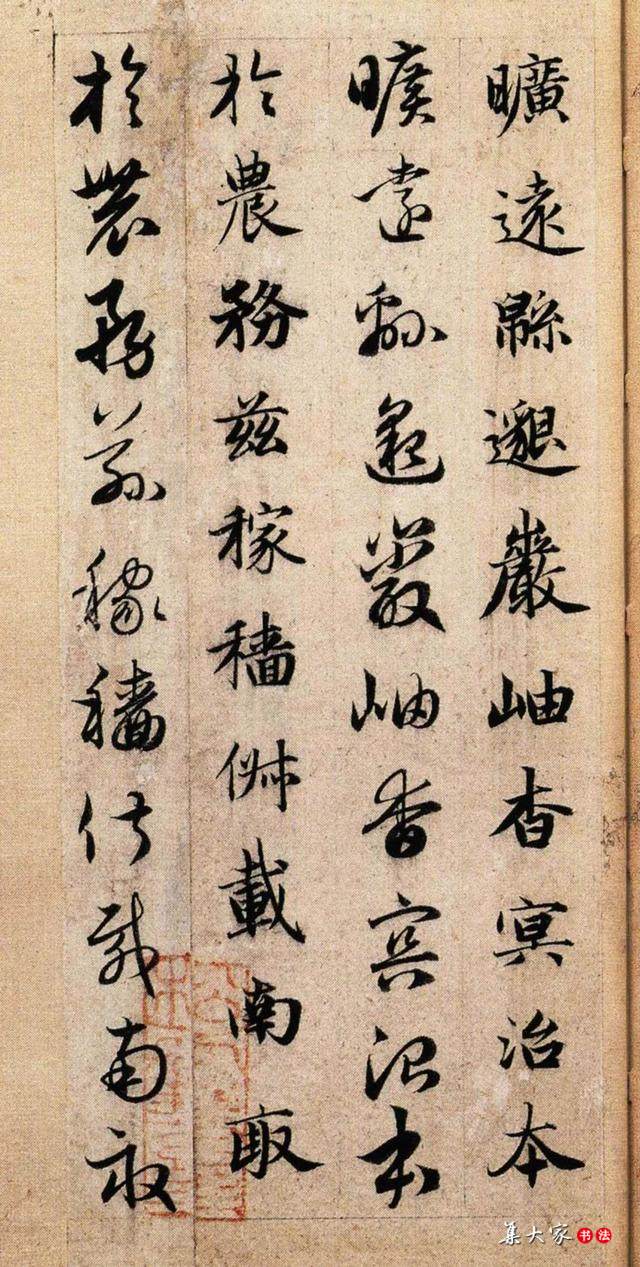 曠遠緜邈巖岫杳冥治本
曠遠緜邈巖岫杳冥治本
於農務茲稼穡俶載南畝
於農務茲稼穡俶載南畝
集大家书法